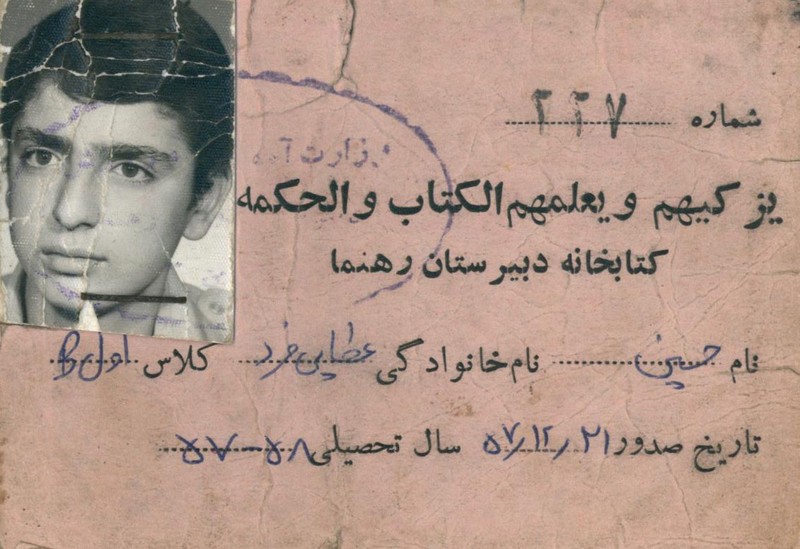 شماره ۲۲۷
وزارت آمو
یزکیهم و یعلمهم الکتاب و الحکمه
کتابخانه دبیرستان رهنما
نام حسین نام خانوادگی عطایی فرد کلاس اول B
تاریخ صدور ۵۷/۱۲/۲۱ سال تحصیلی ۵۷-۵۸